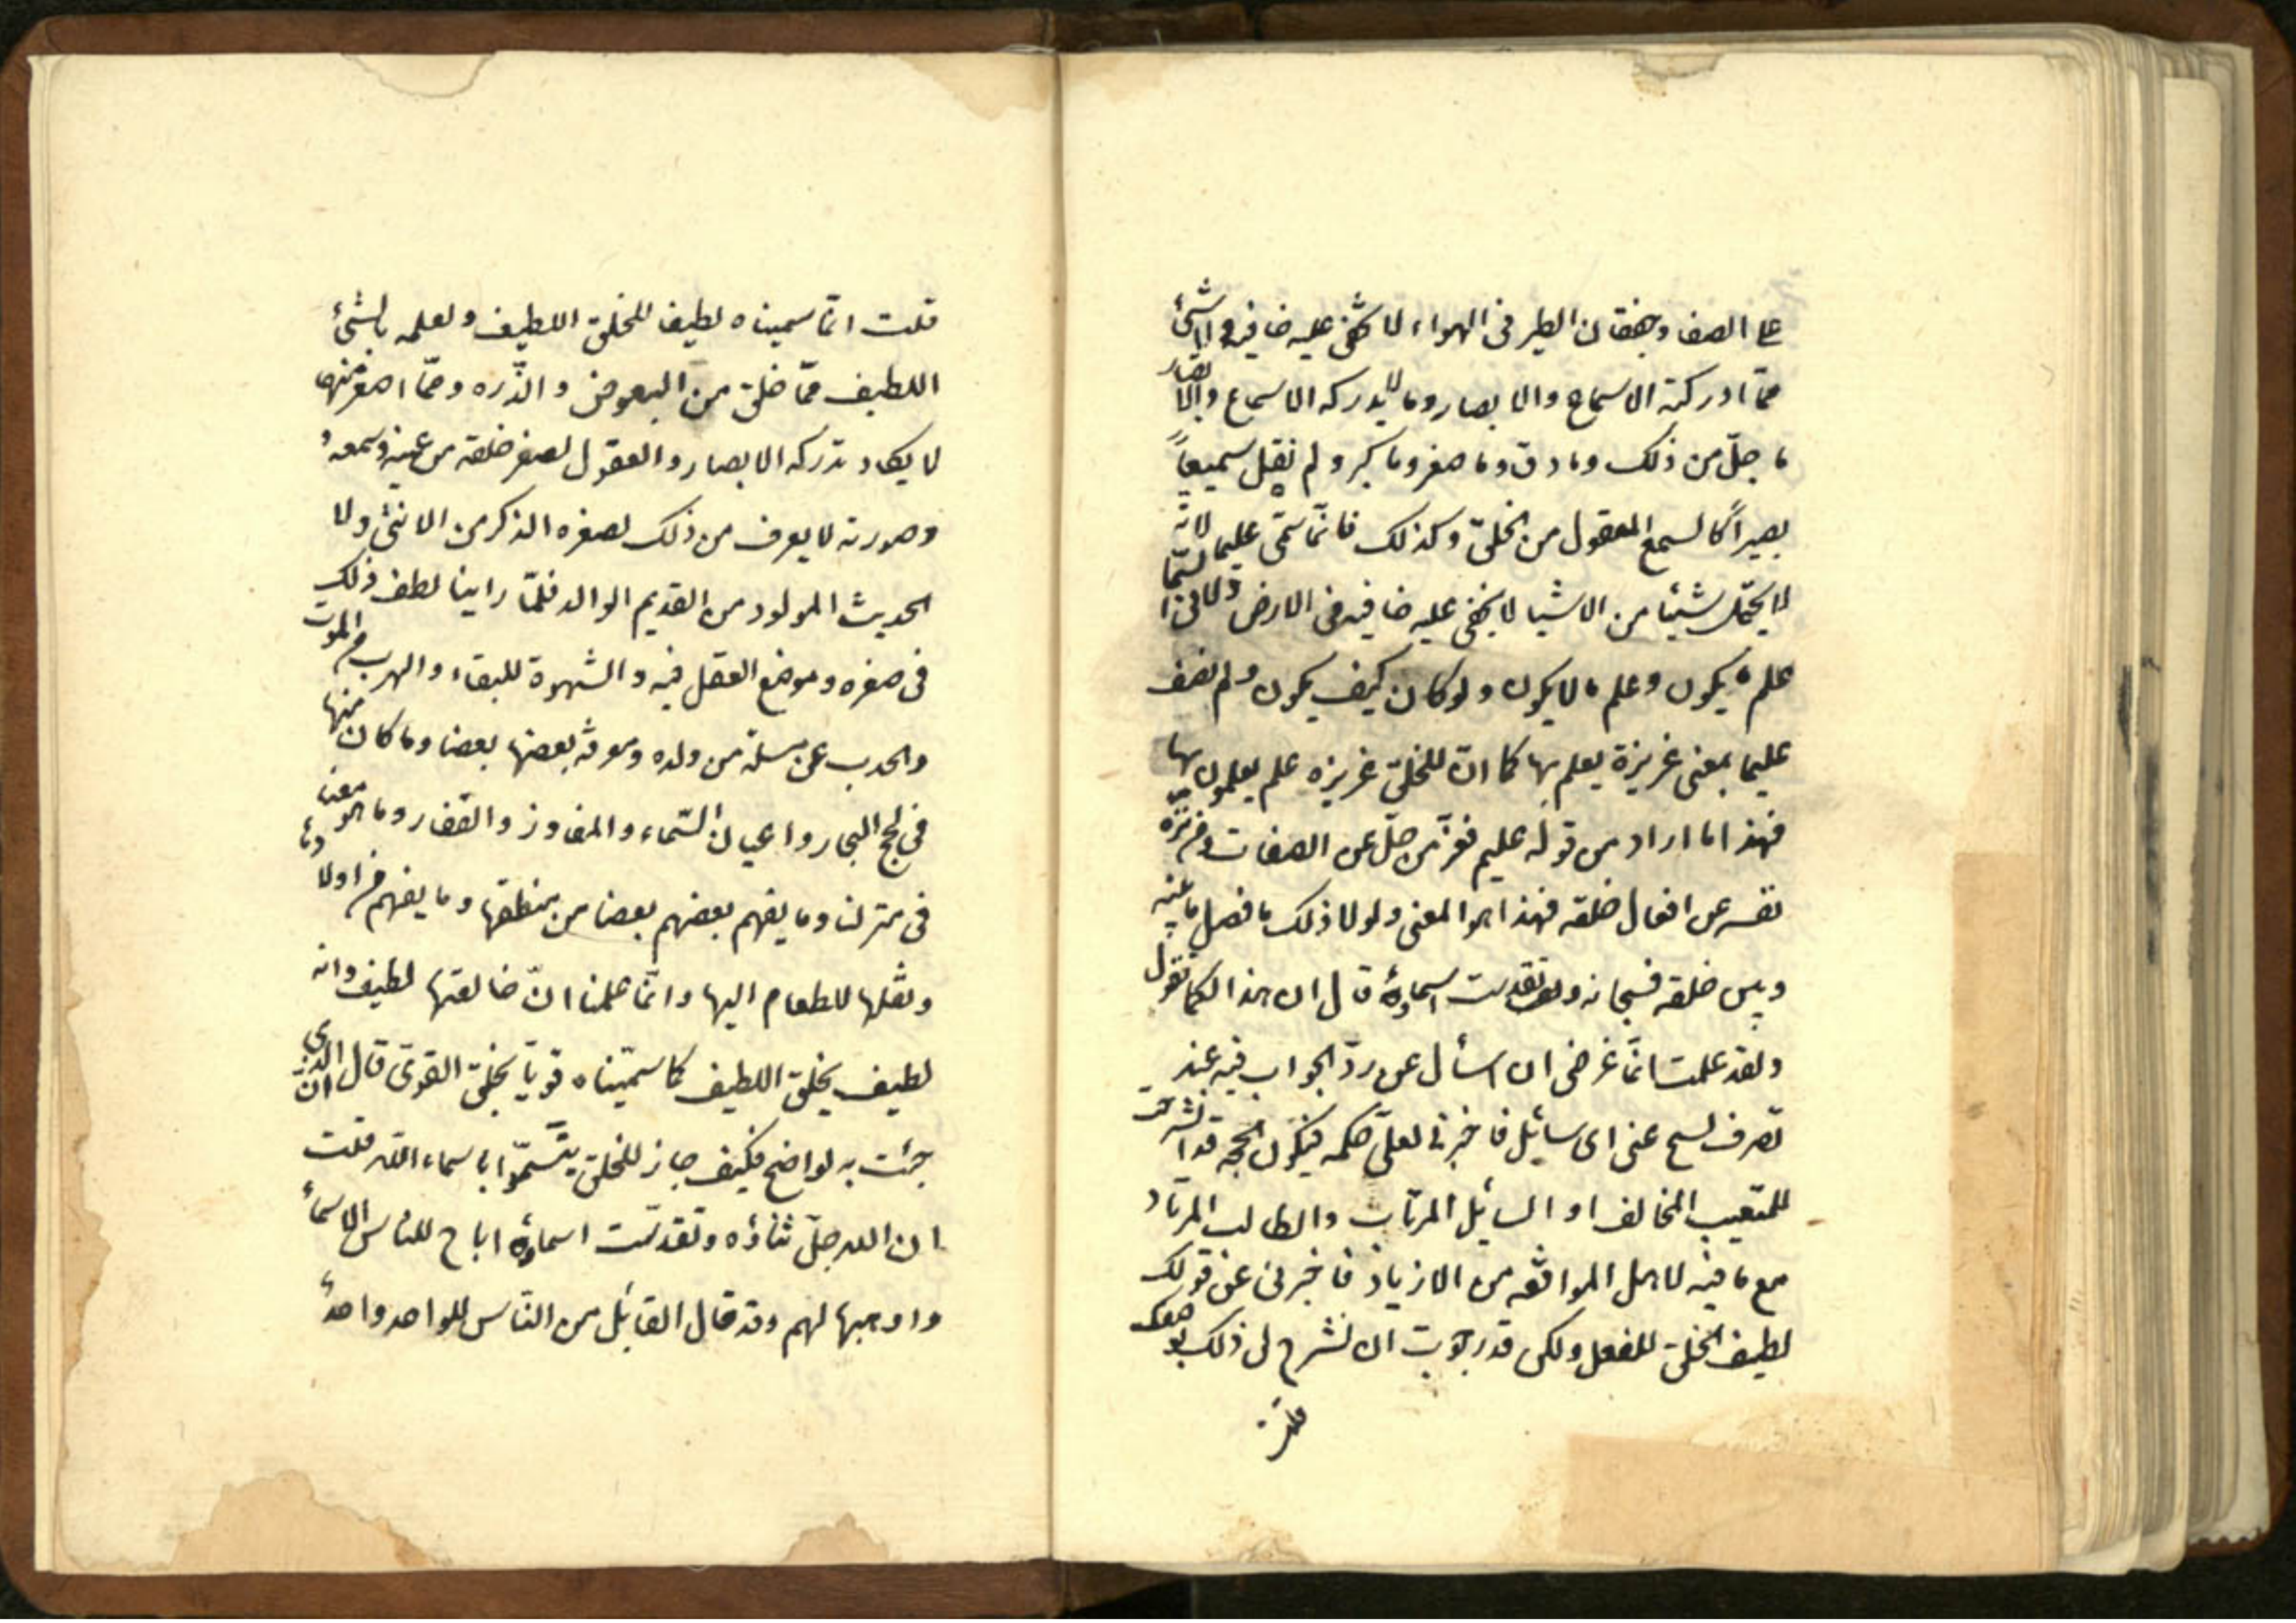 على الصفا وخفقان الطير فى الهواء لا تخفى عليه خافيه ولا شئ
ممّا ادركته الاسماع والابصار وما لا يدركه الاسماع والابصار
ما جلّ من ذلك وما دق وما صغر وما كبر ولم نقل سميعاً
بصيراً كالسمع المعقول من الخلق وكذلك فانّما سمّى عليما لانّه
لا يجهل شيئا من الاشيا لا يخفى عليه خافيه فى الارض ولا فى السّما
علم ما يكون وعلم ما لا يكون ولو كان كيف يكون ولم نصف
عليما بمعنى غريزة يعلم بها كما انّ للخلق غريزه علم يعلمون بها
فهذا ما اراد من قوله عليم فعزّ من جلّ عن الصفات ومن نزّه
نفسه عن افعال خلقه فهذا هو المعنى ولولا ذلك ما فصل ما بينه
وبين خلقه فسبحانه وتقدست اسماؤه قال ان هذا لكما تقول
ولقد علمت انّما غرضى ان اسأل عن ردّ الجواب فيه عند
تصرف يسنح عنى اى سائيل فاخبرنى لعلّى احكمه فيكون الحجه قد انشرحت
للمتعيب المخالف او السائيل المرتاب والطالب المرتاد
مع ما فيه لاهل الموافقه من الازياد فاخبرنى عن قولك
لطيف الخلق للفعل ولكن قد رجوت ان تشرح لى ذلك بوصفك
قلت
قلت انّما سميناه لطيفا للخلق اللطيف ولعلمه بالشئ
اللطيف ممّا خلق من البعوض والذّره وممّا اصغر منها
لا يكاد تدركه الابصار والعقول لصغر خلقه من عينه وسمعه و
وصورته لا يعرف من ذلك لصغره الذكر من الانثى ولا
الحديث المولود من القديم الوالد فلمّا راينا لطف ذلك
فى صغره وموضع العقل فيه والشهوة للبقاء والهرب من الموت
والحدب على نسله من ولده ومعرفة بعضها بعضا وما كان منها
فى لجج البحار واعيان السّماء والمفاوز والقفار وما هو معنا
فى منزلنا وما يفهم بعضهم بعضا من منطقها وما يفهم من اولادها
ونقلها للطعام اليها وانّما علمنا انّ خالقها لطيف وانه
لطيف بخلق اللطيف كما سمّيناه قويّا بخلق القوىّ قال ان الذى
جئت به لواضح فكيف جاز للخلق يتسمّوا باسماء اللّه قلت
ان الله جلّ ثناؤه وتقدّست اسماؤه اباح للناس الاسماء
واوهبها لهم وقد قال القائيل من النّاس للواحد واحد